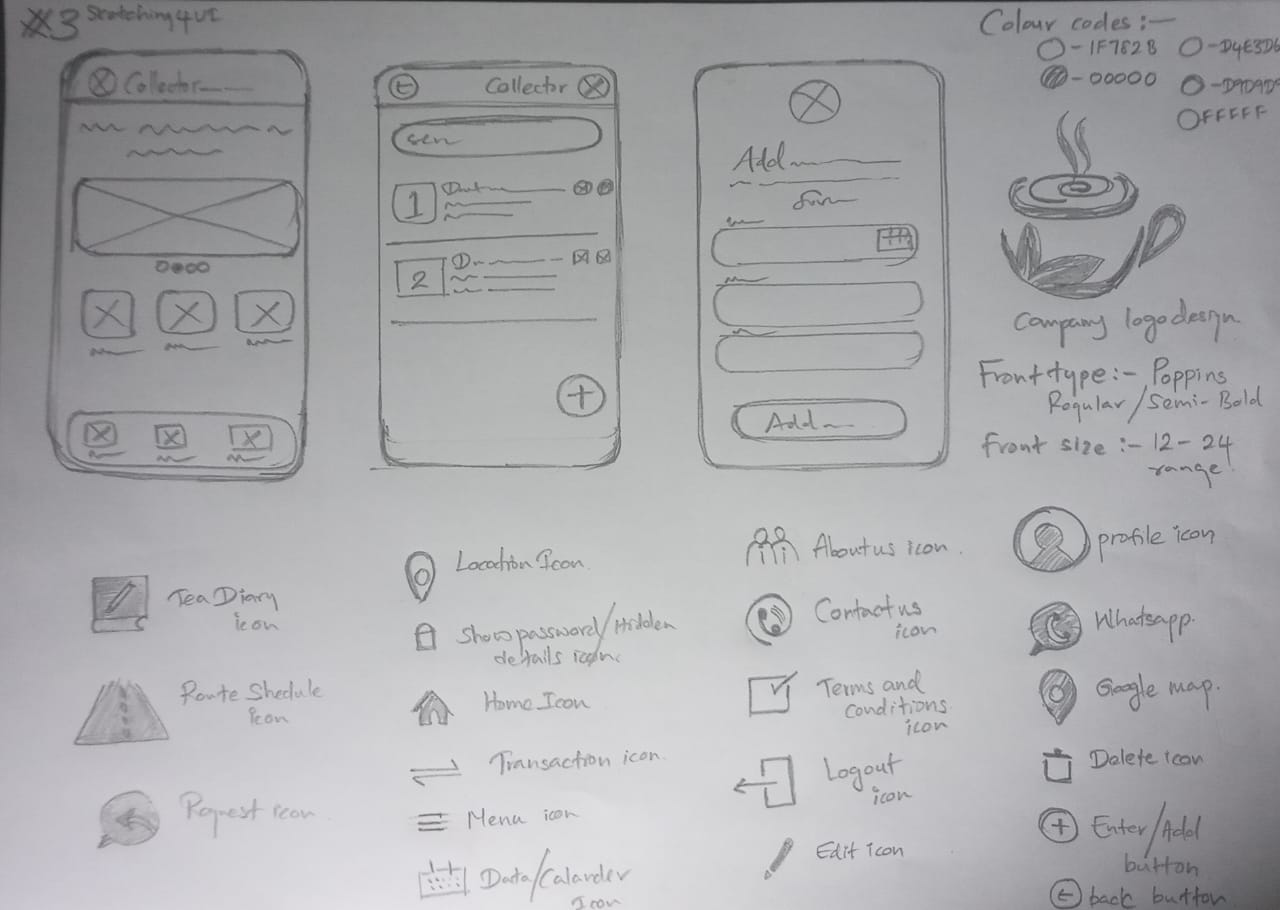 #3 Skatching 4 UI
Collector
Collector
1
2
Add
Add
Colour codes :-
- 1F782B
- 00000
- D4E3D6
- D9D9D9
FFFFF
Company logo design
Front type :- Poppins
Regular / Semi-Bold
Front size :- 12 - 24
range
Tea Diary
icon
Route Shedule
icon
Request icon
Location Icon
Show password/Hidden
details icon.
Home Icon
Transaction icon.
Menu icon
Data/Calander
Icon
About us icon.
Contact us
icon
Terms and
conditions
icon
Logout
icon
Edit icon
profile icon
Whatsapp.
Google map.
Delete icon
Enter/Add
button
back button